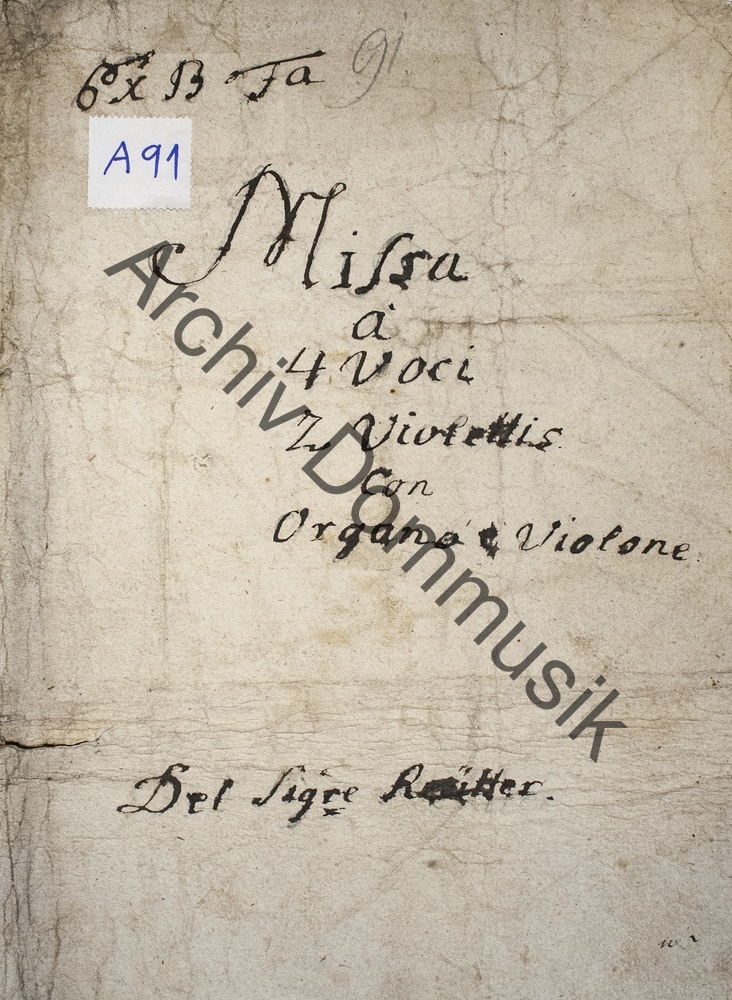 Ex B Fa 91
A 91
Missa
à
4 Voci
2 Violettis
Con
Organo è Violone
Del Sigre Reütter.
Archiv Dommusik